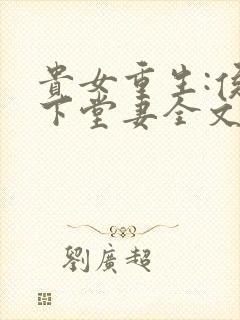 貴女重生:侯
下堂妻全文
劉廣超